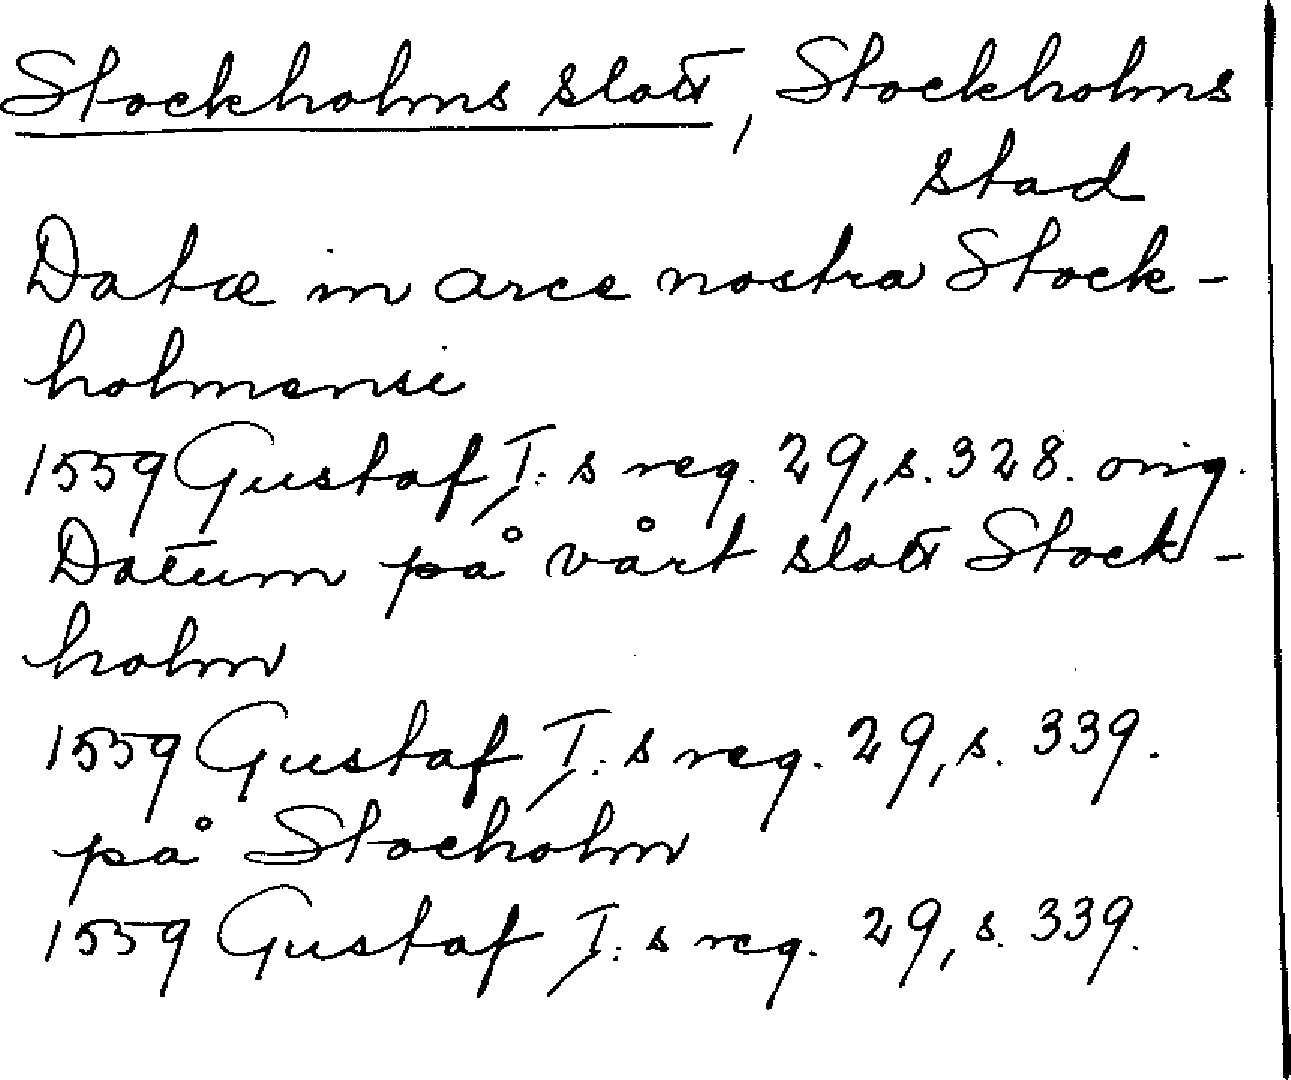 Stockholms slott, Stockholms
stad
Datæ in arce nostra Stock-
holmensi
1559 Gustaf I:s reg. 29, s. 328. orig.
Datum på vårt slott Stock-
holm
1559 Gustaf I:s reg. 29, s. 339.
på Stocholm
1559 Gustaf I:s reg. 29, s. 339.